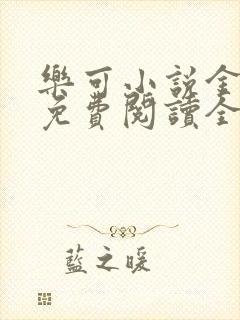 樂可小説全
免費閱讀全
藍之暖